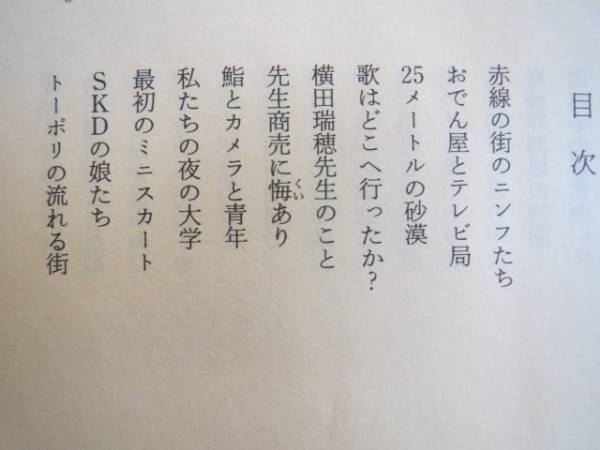 目次
赤線の街のニンフたち
おでん屋とテレビ局
25メートルの砂漠
歌はどこへ行ったか?
横田瑞穂先生のこと
先生商売に悔あり
くい
鮨とカメラと青年
私たちの夜の大学
最初のミニスカート
SKDの娘たち
トーポリの流れる街